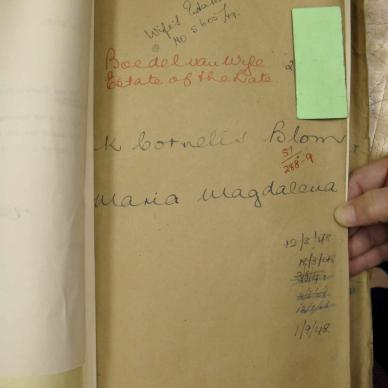 Wife's Estate
No 5605/49.
Boedel van Wyle
Estate of the Late
K Cornelis Blom
51
288-9
Maria Magdalena
12/2/48
18/3/48
1/9/48.